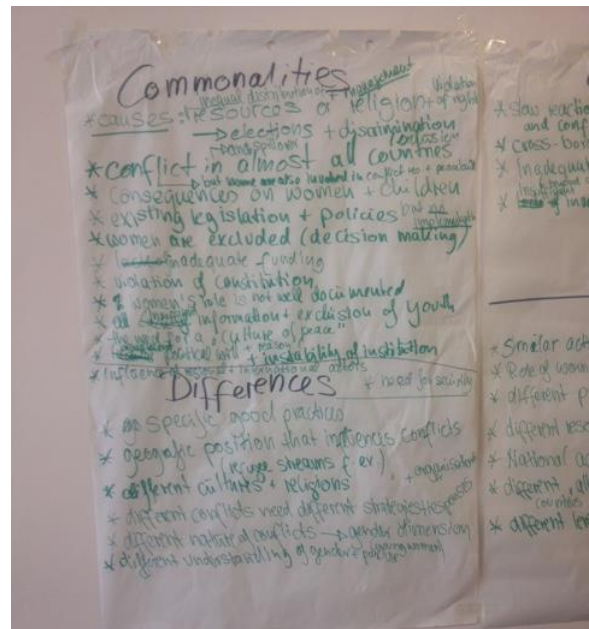 Commonalities
unequal distribution of + management
violation of rights
* causes: resources or religion
→ elections + discrimination
* conflict in almost all countries
→ but women are also involved in conflict
* consequences on women + children
* existing legislation + policies but no
* women are excluded (decision making)
* inadequate funding
* violation of constitution
* women's role is not well documented
* information + exclusion of youth
* the need for a "culture of peace"
* political will + instability of institution
* Influence of + international actors
* need for
Differences
* specific good practices
* geografic position that influences conflicts
(refuge streams f. ex)
* different cultures + religions
+ organisations
* different conflicts need different strategies
* different nature of conflicts → gender dimension
* different understanding of gender +
* slow reaction
and conf
* cross-bor
* Inadequat
* of inad
* Similar act
* Role of wom
* different p
* different reso
* National ac
* different, all
countries
* different lev